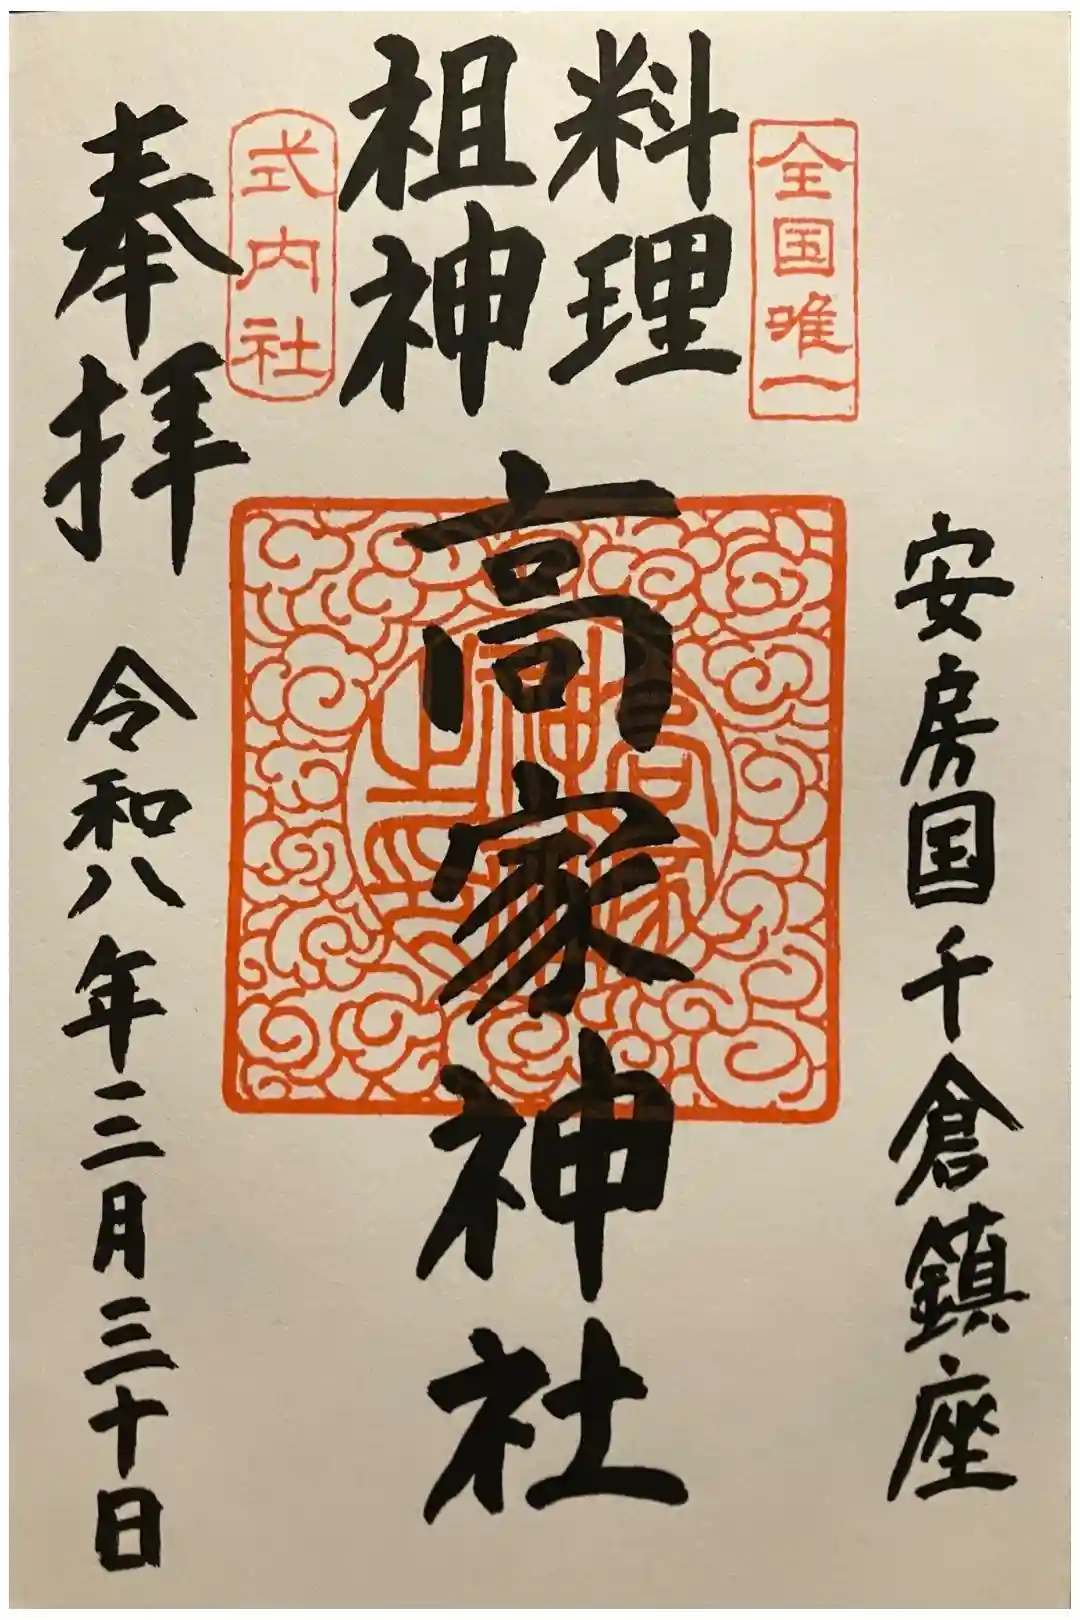 全国唯一
安房国千倉鎮座
料理
祖神
高家神社
式内社
奉拝
令和八年三月三十日